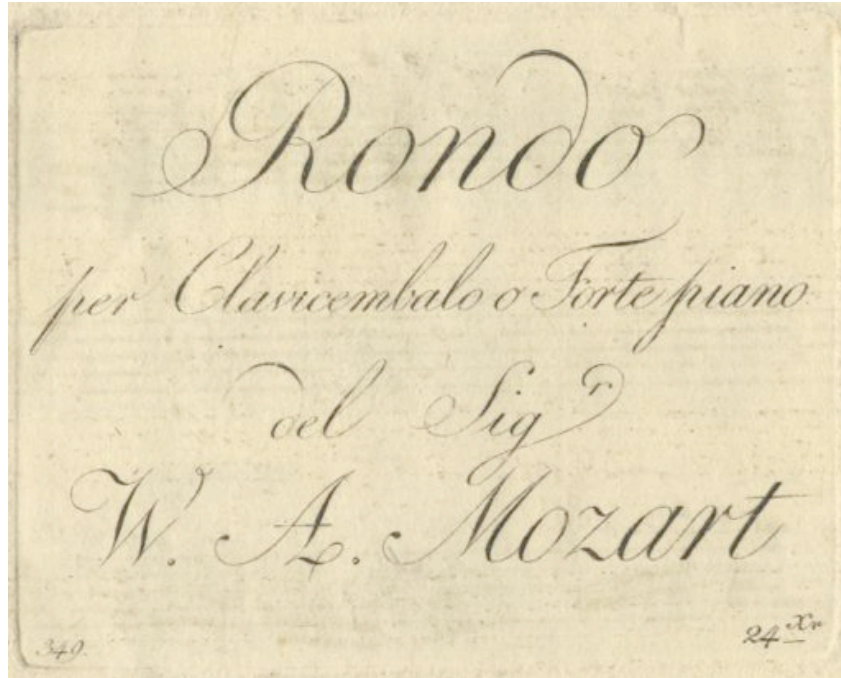 Rondo
per Clavicembalo o Forte piano
del Sigr
W. A. Mozart
349. 24 Xr